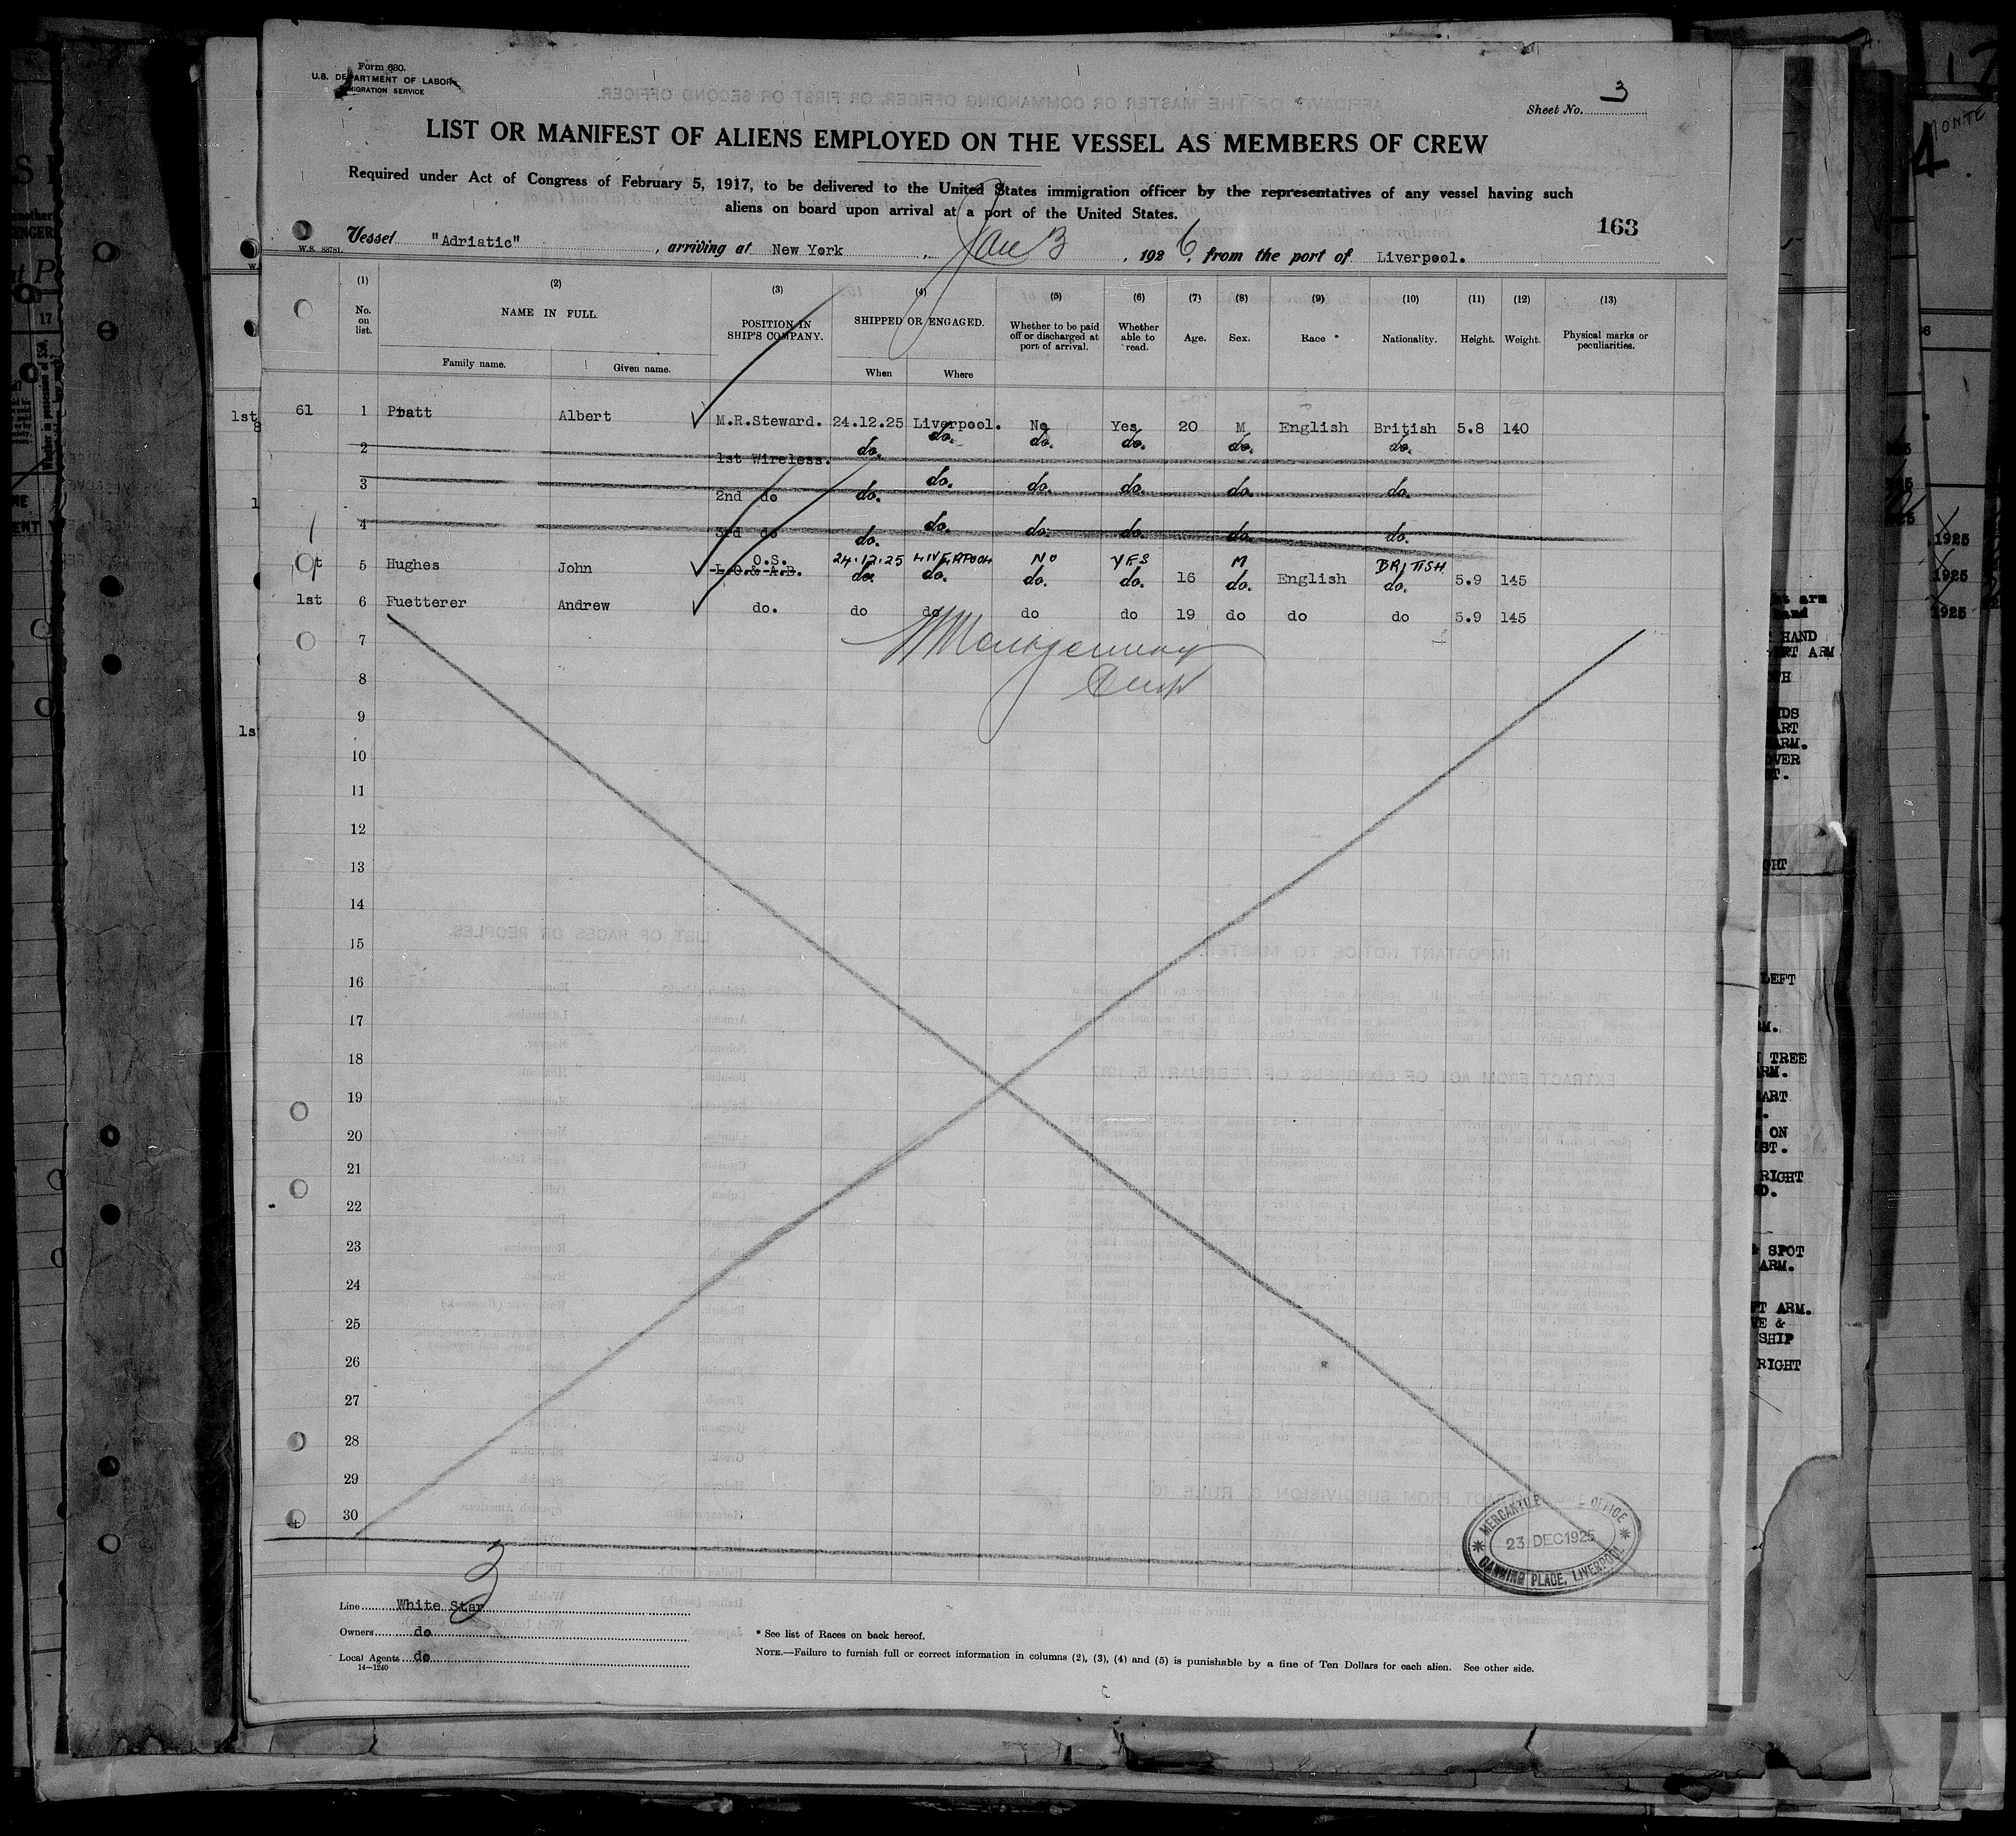 Form 680.
U.S. DEPARTMENT OF LABOR
IMMIGRATION SERVICE
Sheet No. 3
LIST OR MANIFEST OF ALIENS EMPLOYED ON THE VESSEL AS MEMBERS OF CREW
Required under Act of Congress of February 5, 1917, to be delivered to the United States immigration officer by the representatives of any vessel having such
aliens on board upon arrival at a port of the United States.
163
W.S. 88781.
Vessel "Adriatic", arriving at New York, Jan 3, 1926, from the port of Liverpool.
(1) (2) (3) (4) (5) (6) (7) (8) (9) (10) (11) (12) (13)
No. on list. NAME IN FULL. Family name. Given name. POSITION IN SHIP'S COMPANY. SHIPPED OR ENGAGED. When Where Whether to be paid off or discharged at port of arrival. Whether able to read. Age. Sex. Race * Nationality. Height. Weight. Physical marks or peculiarities.
61 1 Pratt Albert M.R.Steward. 24.12.25 Liverpool. No Yes 20 M English British 5.8 140
2 1st Wireless. do. do. do. do. do. do.
3 2nd do do. do. do. do. do. do.
4 3rd do do. do. do. do. do. do.
O.S. 24.12.25 LIVERPOOL NO YES M BRITISH
5 Hughes John L.O.& A.B. do. do. do. do. 16 do. English do. 5.9 145
1st 6 Fuetterer Andrew do. do do do do 19 do do do 5.9 145
7
8
9
10
11
12
13
14
15
16
17
18
19
20
21
22
23
24
25
26
27
28
29
30
MERCANTILE OFFICE
23 DEC 1925
CANNING PLACE, LIVERPOOL
3
Line White Star
Owners do
Local Agents do
14—1240
* See list of Races on back hereof.
NOTE.—Failure to furnish full or correct information in columns (2), (3), (4) and (5) is punishable by a fine of Ten Dollars for each alien. See other side.